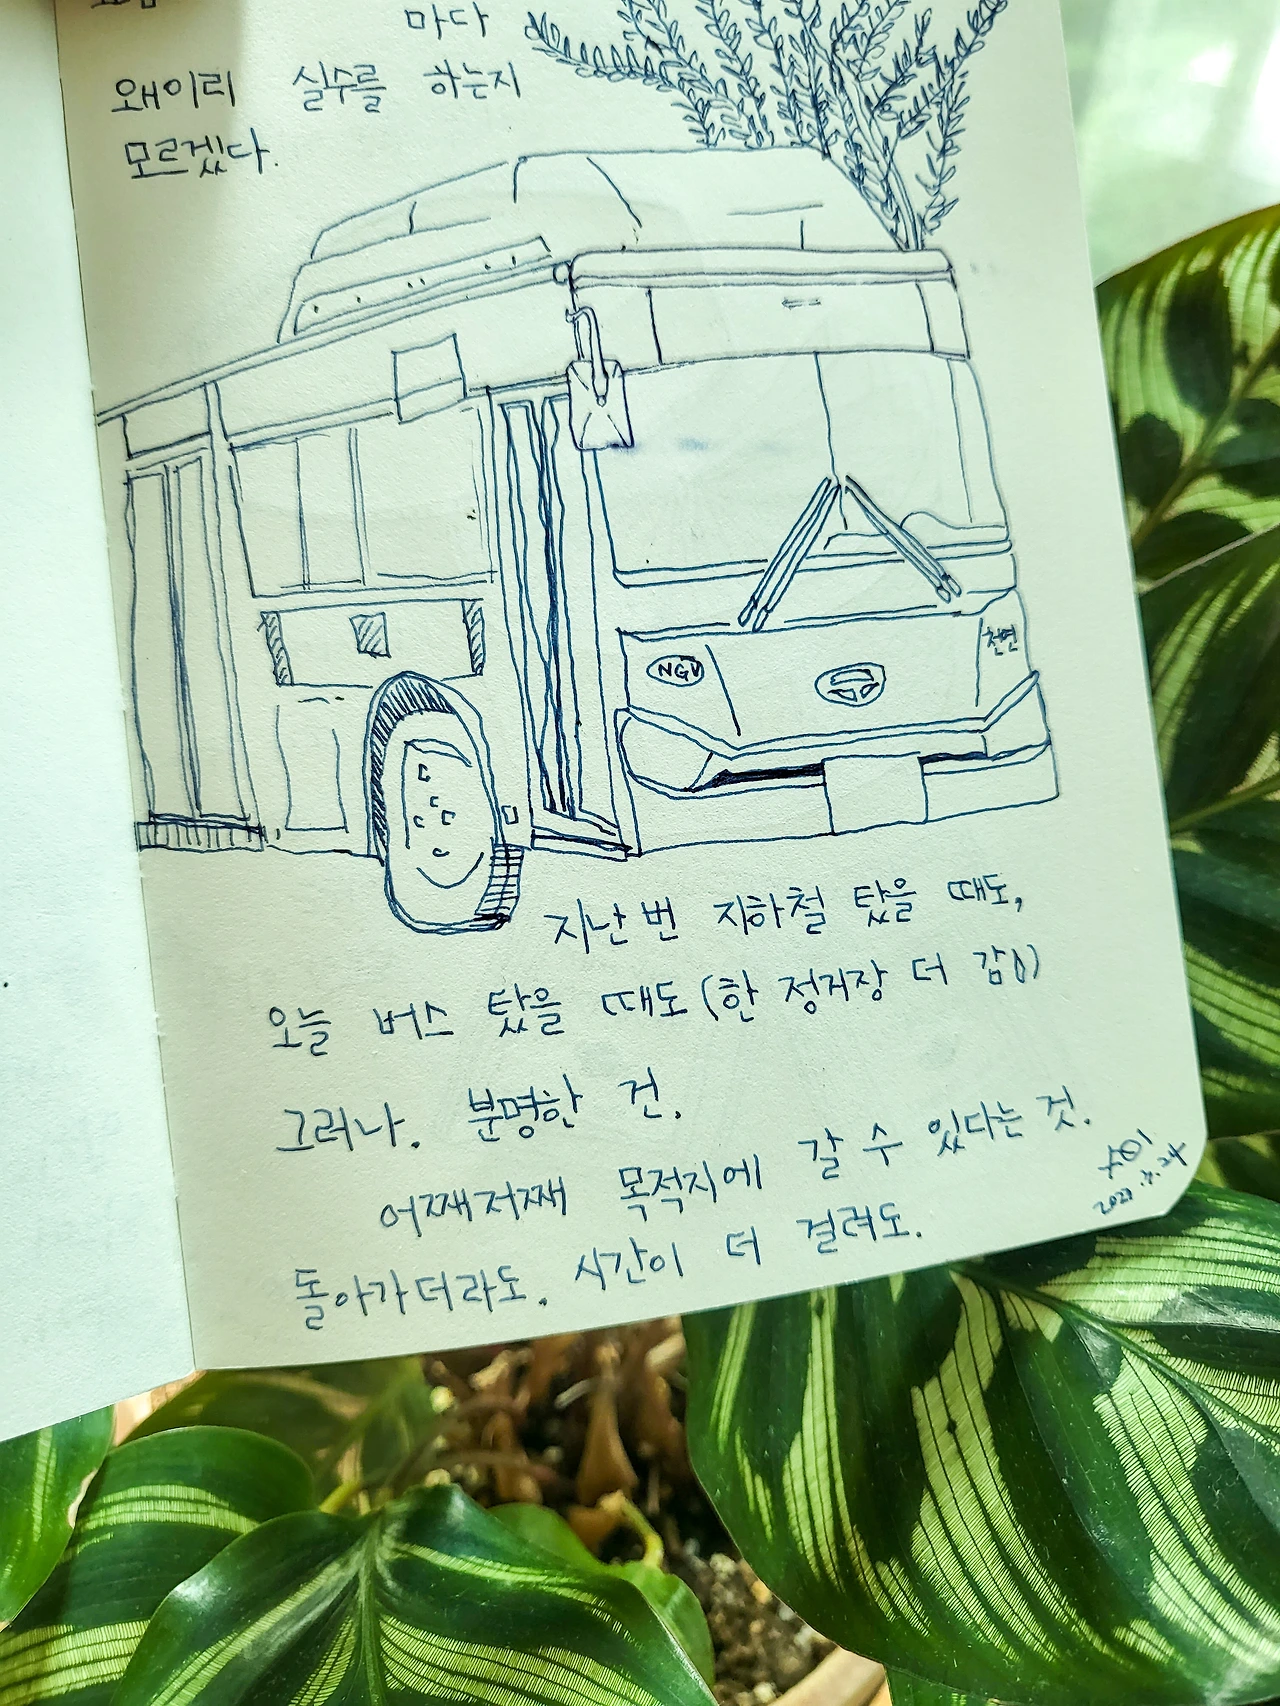 마다
왜이리 실수를 하는지
모르겠다.
NGV
천연
지난번 지하철 탔을 때도,
오늘 버스 탔을 때도 (한 정거장 더 감!)
그러나. 분명한 건.
어째저째 목적지에 갈 수 있다는 것.
돌아가더라도. 시간이 더 걸려도.